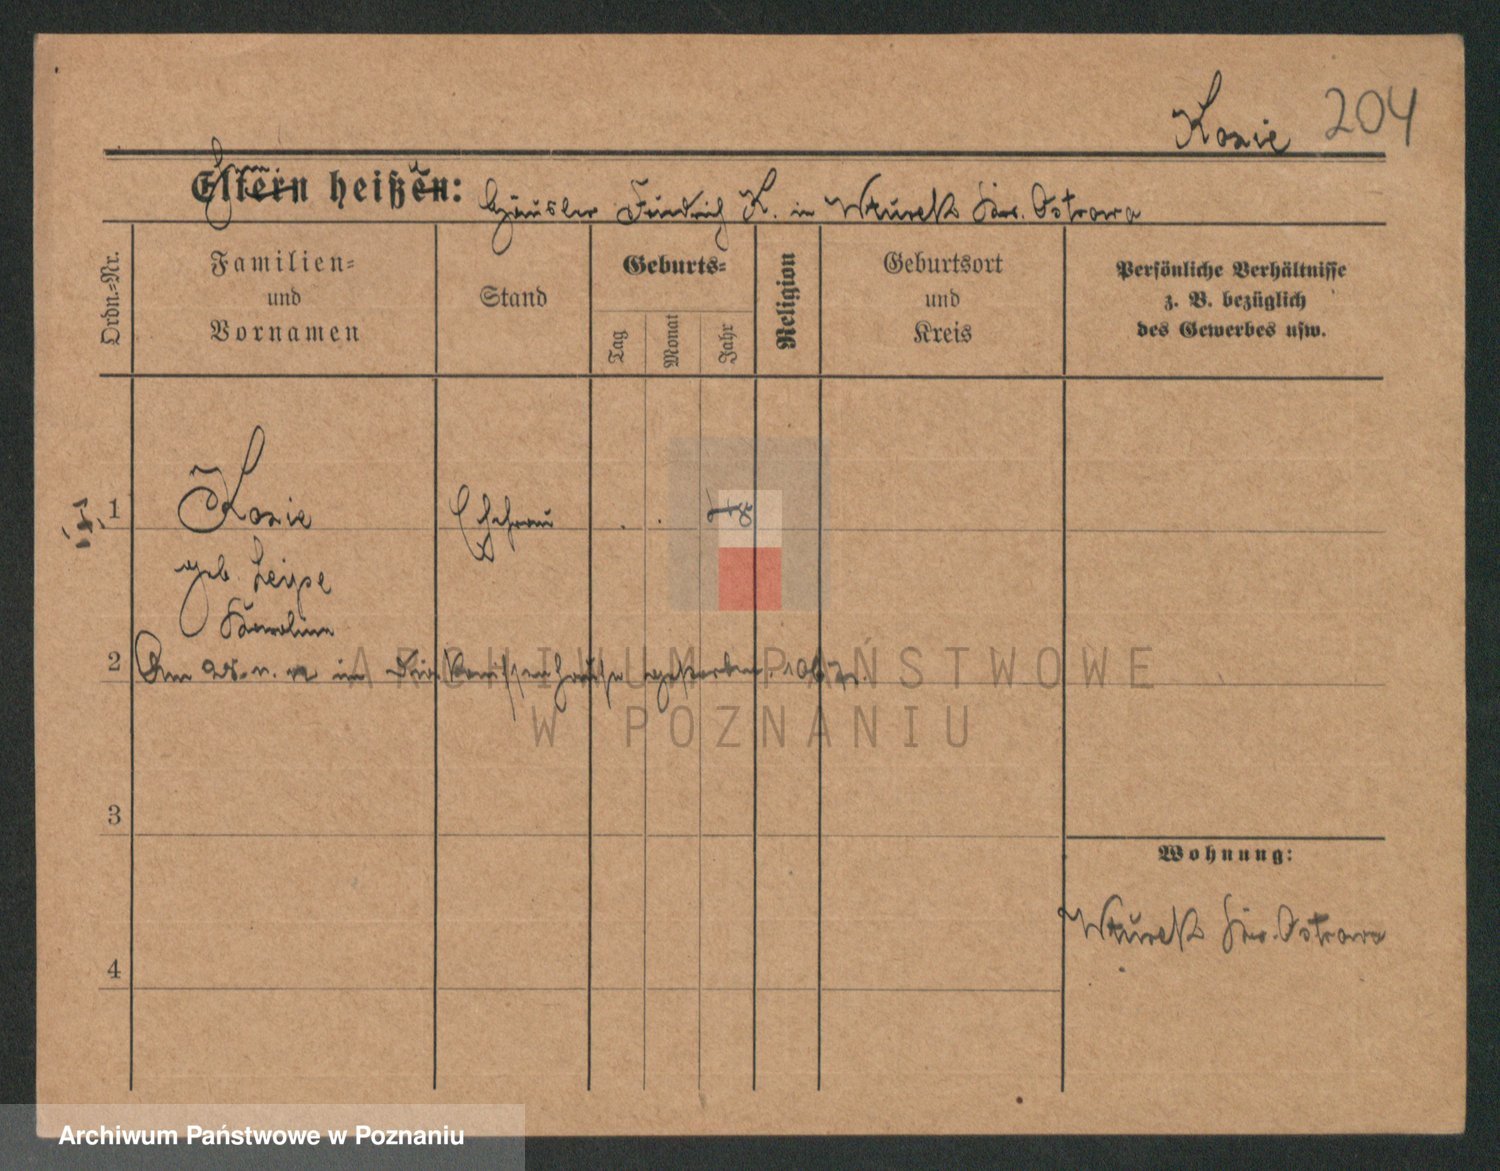 Kosie 204
Eltern heißen: Häusler Friedrich K. in Wturek Kr. Ostrowo
Ordn.-Nr.
Familien-
und
Vornamen
Stand
Geburts-
Tag
Monat
Jahr
Religion
Geburtsort
und
Kreis
Persönliche Verhältnisse
z. B. bezüglich
des Gewerbes usw.
1 Kosie Ehefrau . .
geb. Leipe
Karolina
2 Am in gestorben.
ARCHIWUM PAŃSTWOWE
W POZNANIU
3
Wohnung:
Wturek Kr. Ostrowo
4
Archiwum Państwowe w Poznaniu